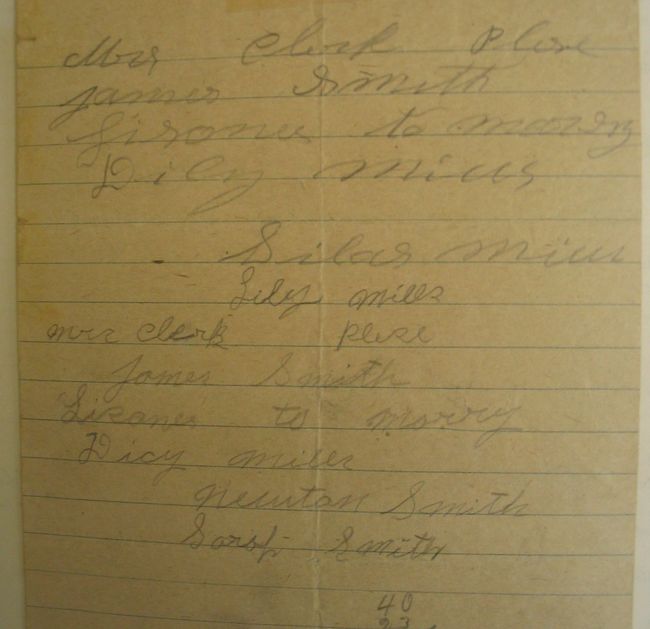 Mrs Clerk Plese
James Smith
Lisones to marry
Dicy Mills
Silas Mills
Lidy mills
mrs clerk plese
James Smith
Lisones to marry
Dicy mills
Newton Smith
Smith
40
23